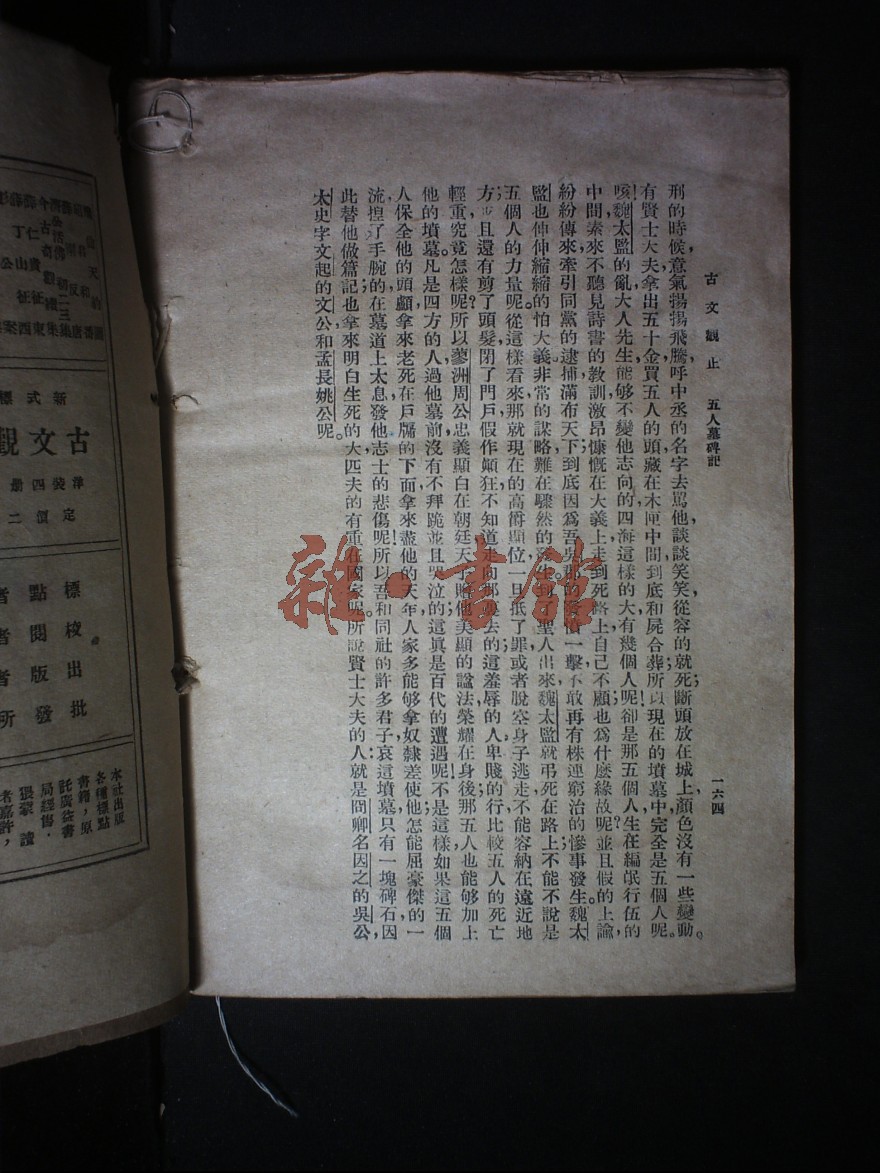 古文觀止　五人墓碑記
一六四
刑的時候，意氣揚揚飛騰，呼中丞的名字去罵他，談談笑笑，從容的就死；斷頭放在城上，顏色沒有一些變動。
有賢士大夫拿出五十金，買五人的頭，藏在木匣中間，到底和屍合葬，所以現在的墳墓中，完全是五個人呢。
咳！魏太監的亂，大人先生，能够不變他志向的，四海這樣的大，有幾個人呢？卻是那五個人生在編氓行伍的
中間，素來不聽見詩書的教訓，激昂慷慨，在大義上走到死路上，自己不顧，也爲什麼緣故呢？並且假的上諭，
紛紛傳來，牽引同黨的逮捕，滿布天下，到底因爲吾吳那的發憤一擊，不敢再有株連窮治的慘事發生。魏太
監也伸伸縮縮的怕大義，非常的謀略，難在驟然的發生，到聖人出來，魏太監就弔死在路上，不能不說是
五個人的力量呢。從這樣看來，那就現在的高爵顯位，一旦抵了罪，或者脫空身子逃走，不能容納在遠近地
方；並且還有剪了頭髮，閉了門戶，假作顛狂，不知道走向那裏去的，這羞辱的人，卑賤的行，比較五人的死亡，
輕重究竟怎樣呢？所以蓼洲周公，忠義顯白在朝廷，天子贈他美顯的諡法，榮耀在身後；那五人也能够加上
他的墳墓。凡是四方的人，過他墓前，沒有不拜跪並且哭泣的，這眞是百代的遭遇呢！不是這樣，如果這五個
人保全他的頭顱，拿來老死在戶牖的下面，拿來盡他的天年，人家多能够拿奴隸差使他，怎能屈豪傑的一
流，揑了手腕的在墓道上太息，發他志士的悲傷呢！所以吾和同社的許多君子，哀這墳墓只有一塊碑石，因
此替他做篇記，也拿來明白生死的大，匹夫的有重在國家呢。所說賢士大夫的人：就是冏卿名因之的吳公，
太史字文起的文公，和孟長姚公呢。
新式標
古文觀
洋裝四册
定價二
標點者
校閱者
出版者
批發所
本社出版
各種標點
書籍，原
託廣益書
局經售，
猥蒙讀
者嘉許，
雜·書館